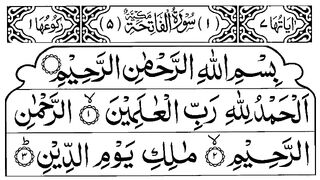 اٰیَاتُهَا ٧ (١) سُوْرَةُ الْفَاتِحَةِ مَكِّيَّةٌ (٥) رُكُوْعُهَا ١
بِسْمِ اللّٰهِ الرَّحْمٰنِ الرَّحِيْمِ
اَلْحَمْدُ لِلّٰهِ رَبِّ الْعٰلَمِيْنَ ١ الرَّحْمٰنِ
الرَّحِيْمِ ٢ مٰلِكِ يَوْمِ الدِّيْنِ ٣